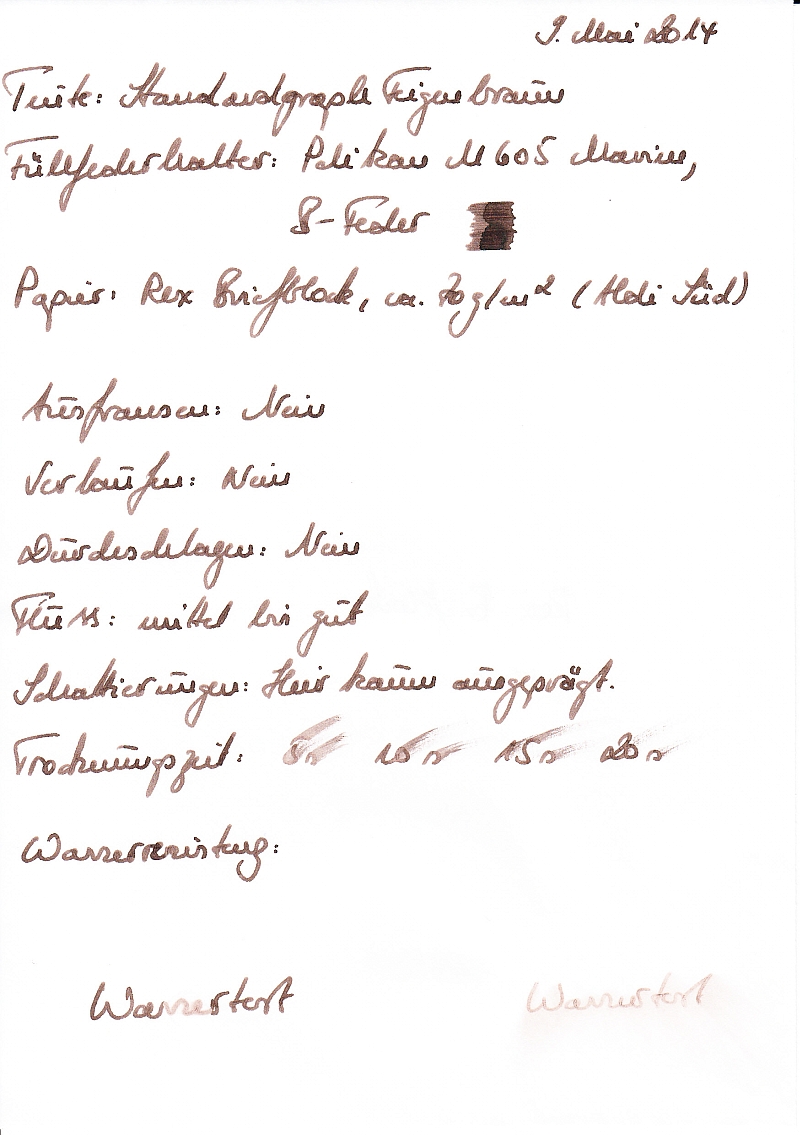 9. Mai 2014
Tinte: Standardgraph Feigenbraun
Füllfederhalter: Pelikan M 605 Marine,
B-Feder
Papier: Rex Briefblock, ca. 70 g/m² (Aldi Süd)
Ausfransen: Nein
Verlaufen: Nein
Durchschlagen: Nein
Fluss: mittel bis gut
Schattierungen: Hier kaum ausgeprägt.
Trocknungszeit: 5s 10s 15s 20s
Wasserresistenz:
Wassertest Wassertest